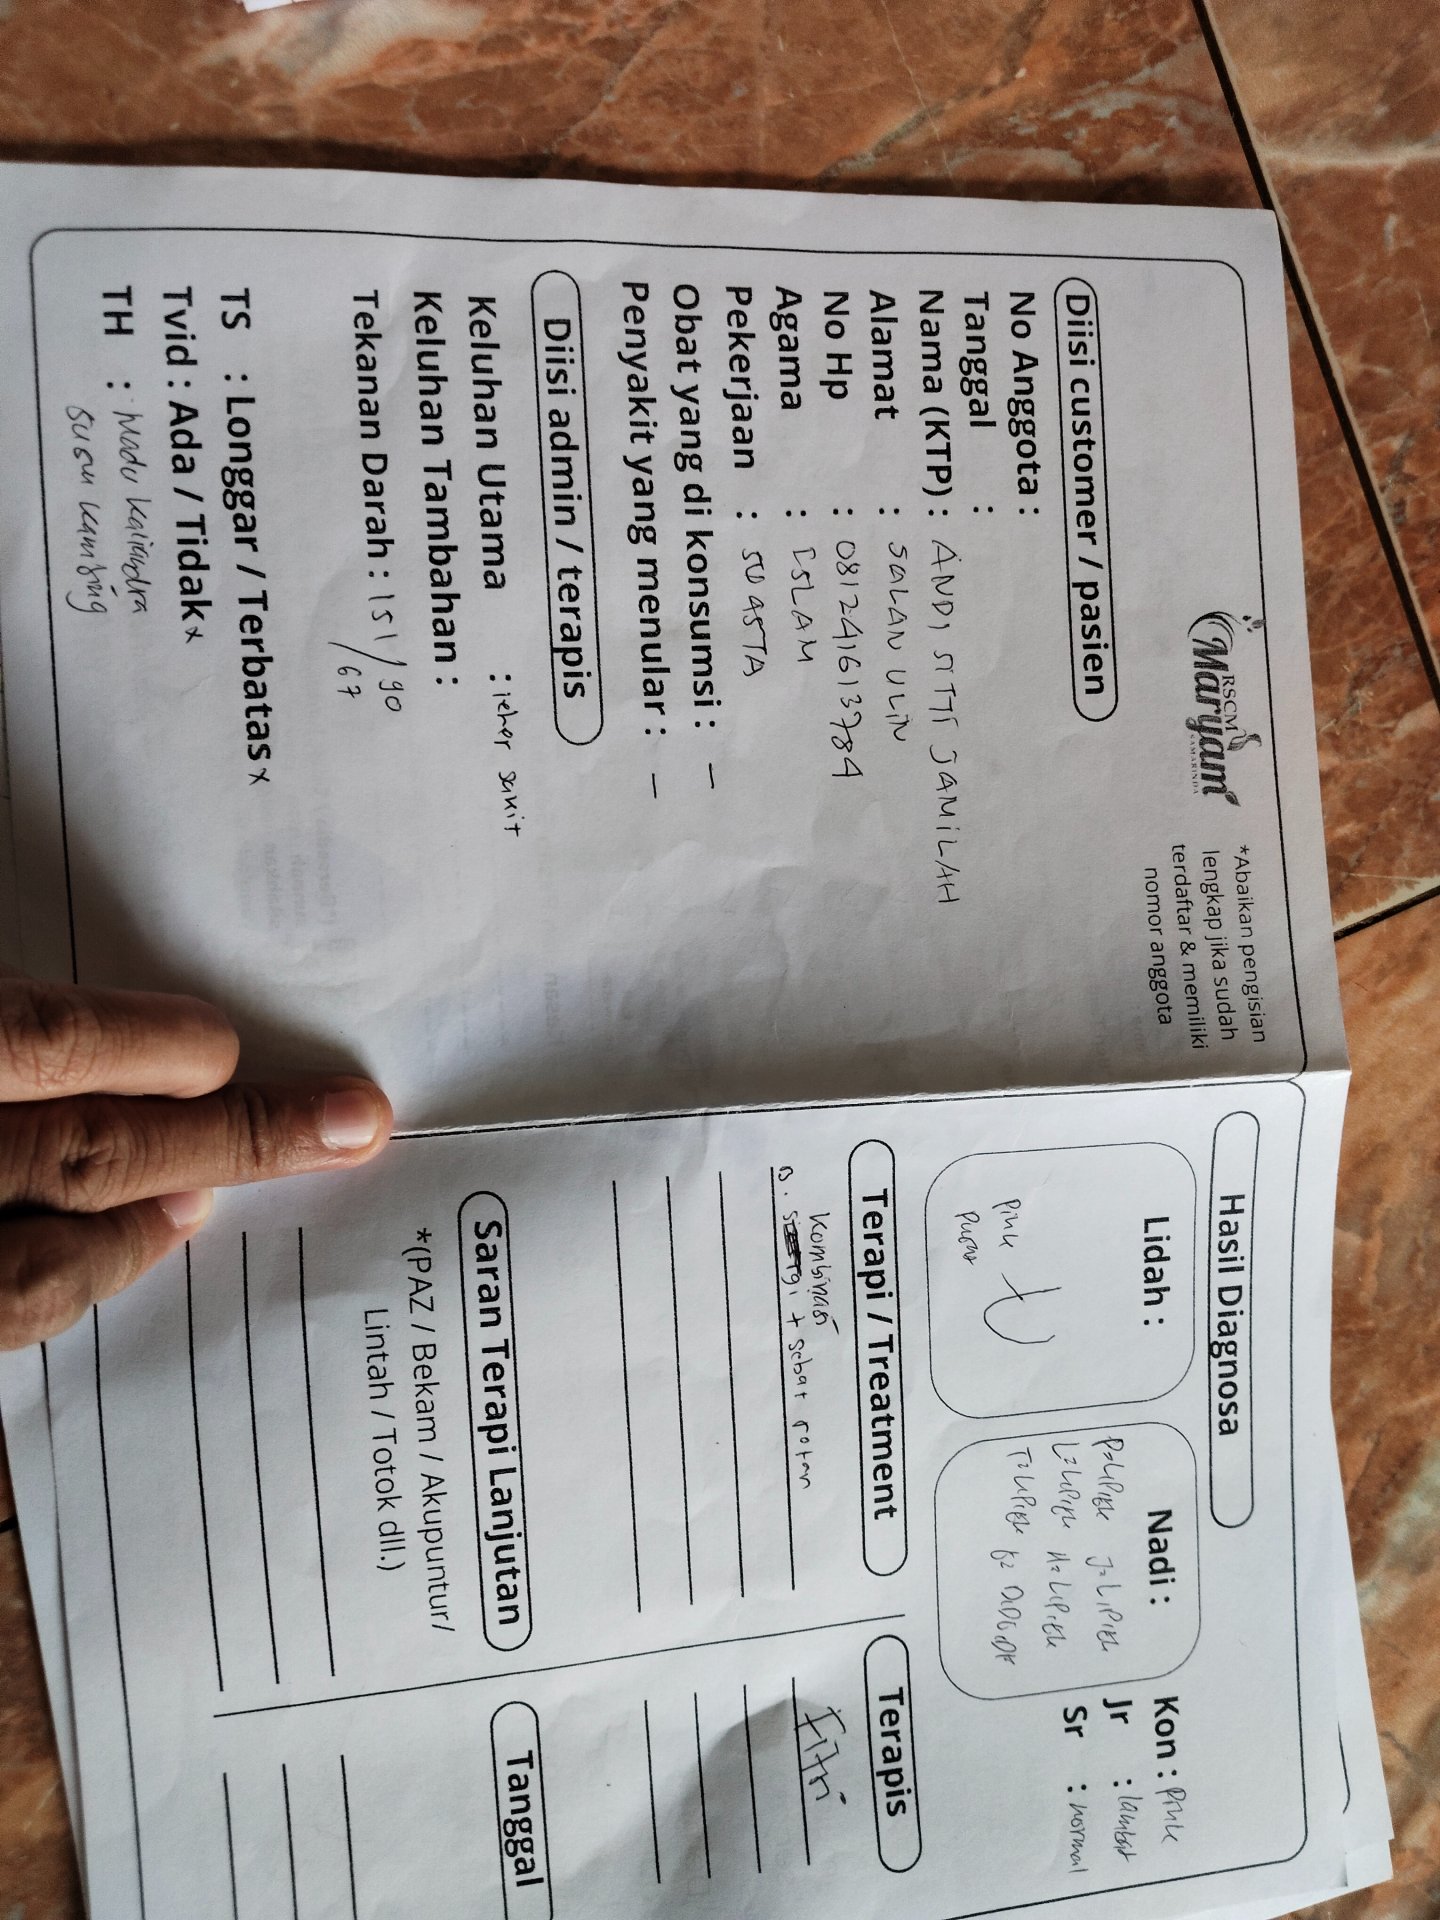 RSCM
Maryam
SAMARINDA
*Abaikan pengisian
lengkap jika sudah
terdaftar & memiliki
nomor anggota
Diisi customer / pasien
No Anggota :
Tanggal :
Nama (KTP) : ANDI SITTI JAMILAH
Alamat : SALAN ULIN
No Hp : 081241613784
Agama : ISLAM
Pekerjaan : SWASTA
Obat yang di konsumsi : -
Penyakit yang menular : -
Diisi admin / terapis
Keluhan Utama : leher sakit
Keluhan Tambahan :
Tekanan Darah : 151/90
/67
TS : Longgar / Terbatas x
Tvid : Ada / Tidak x
TH : Madu kaliandra
susu kambing
Hasil Diagnosa
Lidah :
Pink
Pucat
Nadi :
P=LIPIEH J=LIPIEH
L=LIPIEH H=LIPIEH
Kon : Pink
Jr : lambat
Sr : normal
Terapi / Treatment
Kombinasi
+ sebat rotan
Terapis
Fitri
Saran Terapi Lanjutan
*(PAZ / Bekam / Akupuntur/
Lintah / Totok dll.)
Tanggal